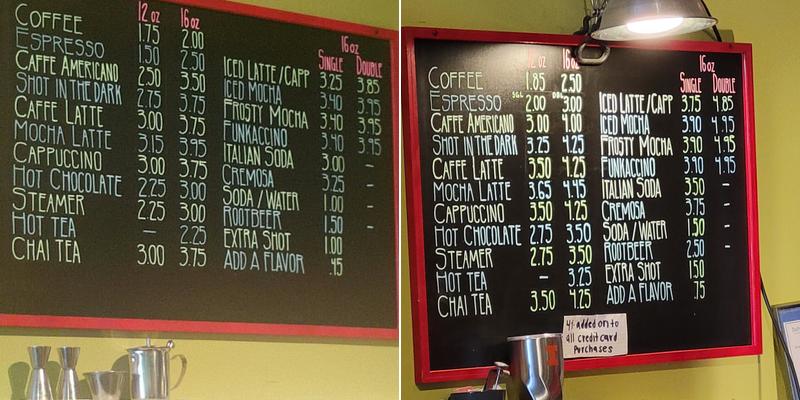 12 oz 16 oz
COFFEE 1.75 2.00
ESPRESSO 1.50 2.50
CAFFE AMERICANO 2.50 3.50
SHOT IN THE DARK 2.75 3.75
CAFFE LATTE 3.00 3.75
MOCHA LATTE 3.15 3.95
CAPPUCCINO 3.00 3.75
HOT CHOCOLATE 2.25 3.00
STEAMER 2.25 3.00
HOT TEA — 2.25
CHAI TEA 3.00 3.75
16 oz
SINGLE DOUBLE
ICED LATTE/CAPP 3.25 3.85
ICED MOCHA 3.40 3.95
FROSTY MOCHA 3.40 3.95
FUNKACCINO 3.40 3.95
ITALIAN SODA 3.00 -
CREMOSA 3.25 -
SODA/WATER 1.00 -
ROOTBEER 1.50 -
EXTRA SHOT 1.00
ADD A FLAVOR .45
12 oz 16 oz
COFFEE 1.85 2.50
ESPRESSO SGL 2.00 DBL 3.00
CAFFE AMERICANO 3.00 4.00
SHOT IN THE DARK 3.25 4.25
CAFFE LATTE 3.50 4.25
MOCHA LATTE 3.65 4.45
CAPPUCCINO 3.50 4.25
HOT CHOCOLATE 2.75 3.50
STEAMER 2.75 3.50
HOT TEA - 3.25
CHAI TEA 3.50 4.25
16 oz
SINGLE DOUBLE
ICED LATTE/CAPP 3.75 4.85
ICED MOCHA 3.90 4.95
FROSTY MOCHA 3.90 4.95
FUNKACCINO 3.90 4.95
ITALIAN SODA 3.50 -
CREMOSA 3.75 -
SODA/WATER 1.50 -
ROOTBEER 2.50 -
EXTRA SHOT 1.50
ADD A FLAVOR .75
4% added on to
all credit card
Purchases